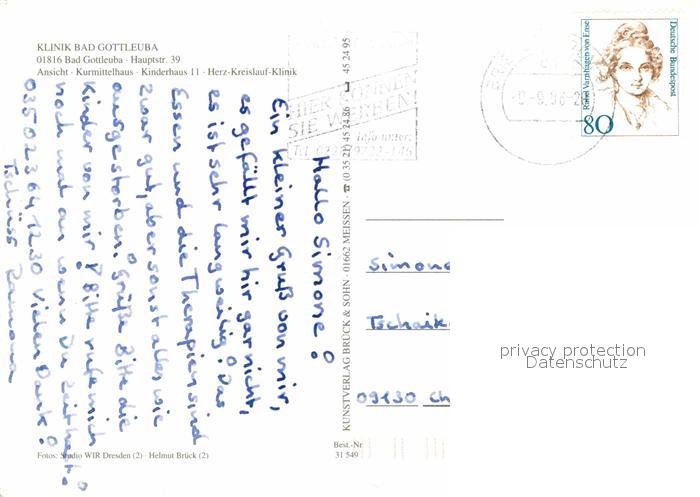 KLINIK BAD GOTTLEUBA
01816 Bad Gottleuba · Hauptstr. 39
Ansicht · Kurmittelhaus · Kinderhaus 11 · Herz-Kreislauf-Klinik
Hallo Simone!
Ein kleiner Gruß von mir,
es gefällt mir hir gar nicht,
es ist sehr langweilig! Das
Essen und die Therapien sind
zwar gut, aber sonst alles wie
ausgestorben! Grüße Bitte die
Kinder von mir! Bitte rufe mich
noch mal an wenn Du Zeit hast!
035023 641230 Vielen Dank!
Tschüss Ramona
Fotos: Studio WIR Dresden (2) · Helmut Brück (2)
Best.-Nr.
31 549
KUNSTVERLAG BRÜCK & SOHN · 01662 MEISSEN · ☎ (0 35 21) 45 24 86 · 45 24 95
HIER KÖNNEN
SIE WERBEN
Info unter:
Deutsche Bundespost
Rahel Varnhagen von Ense
80
Simone
Tschaik
09130 Ch
privacy protection
Datenschutz